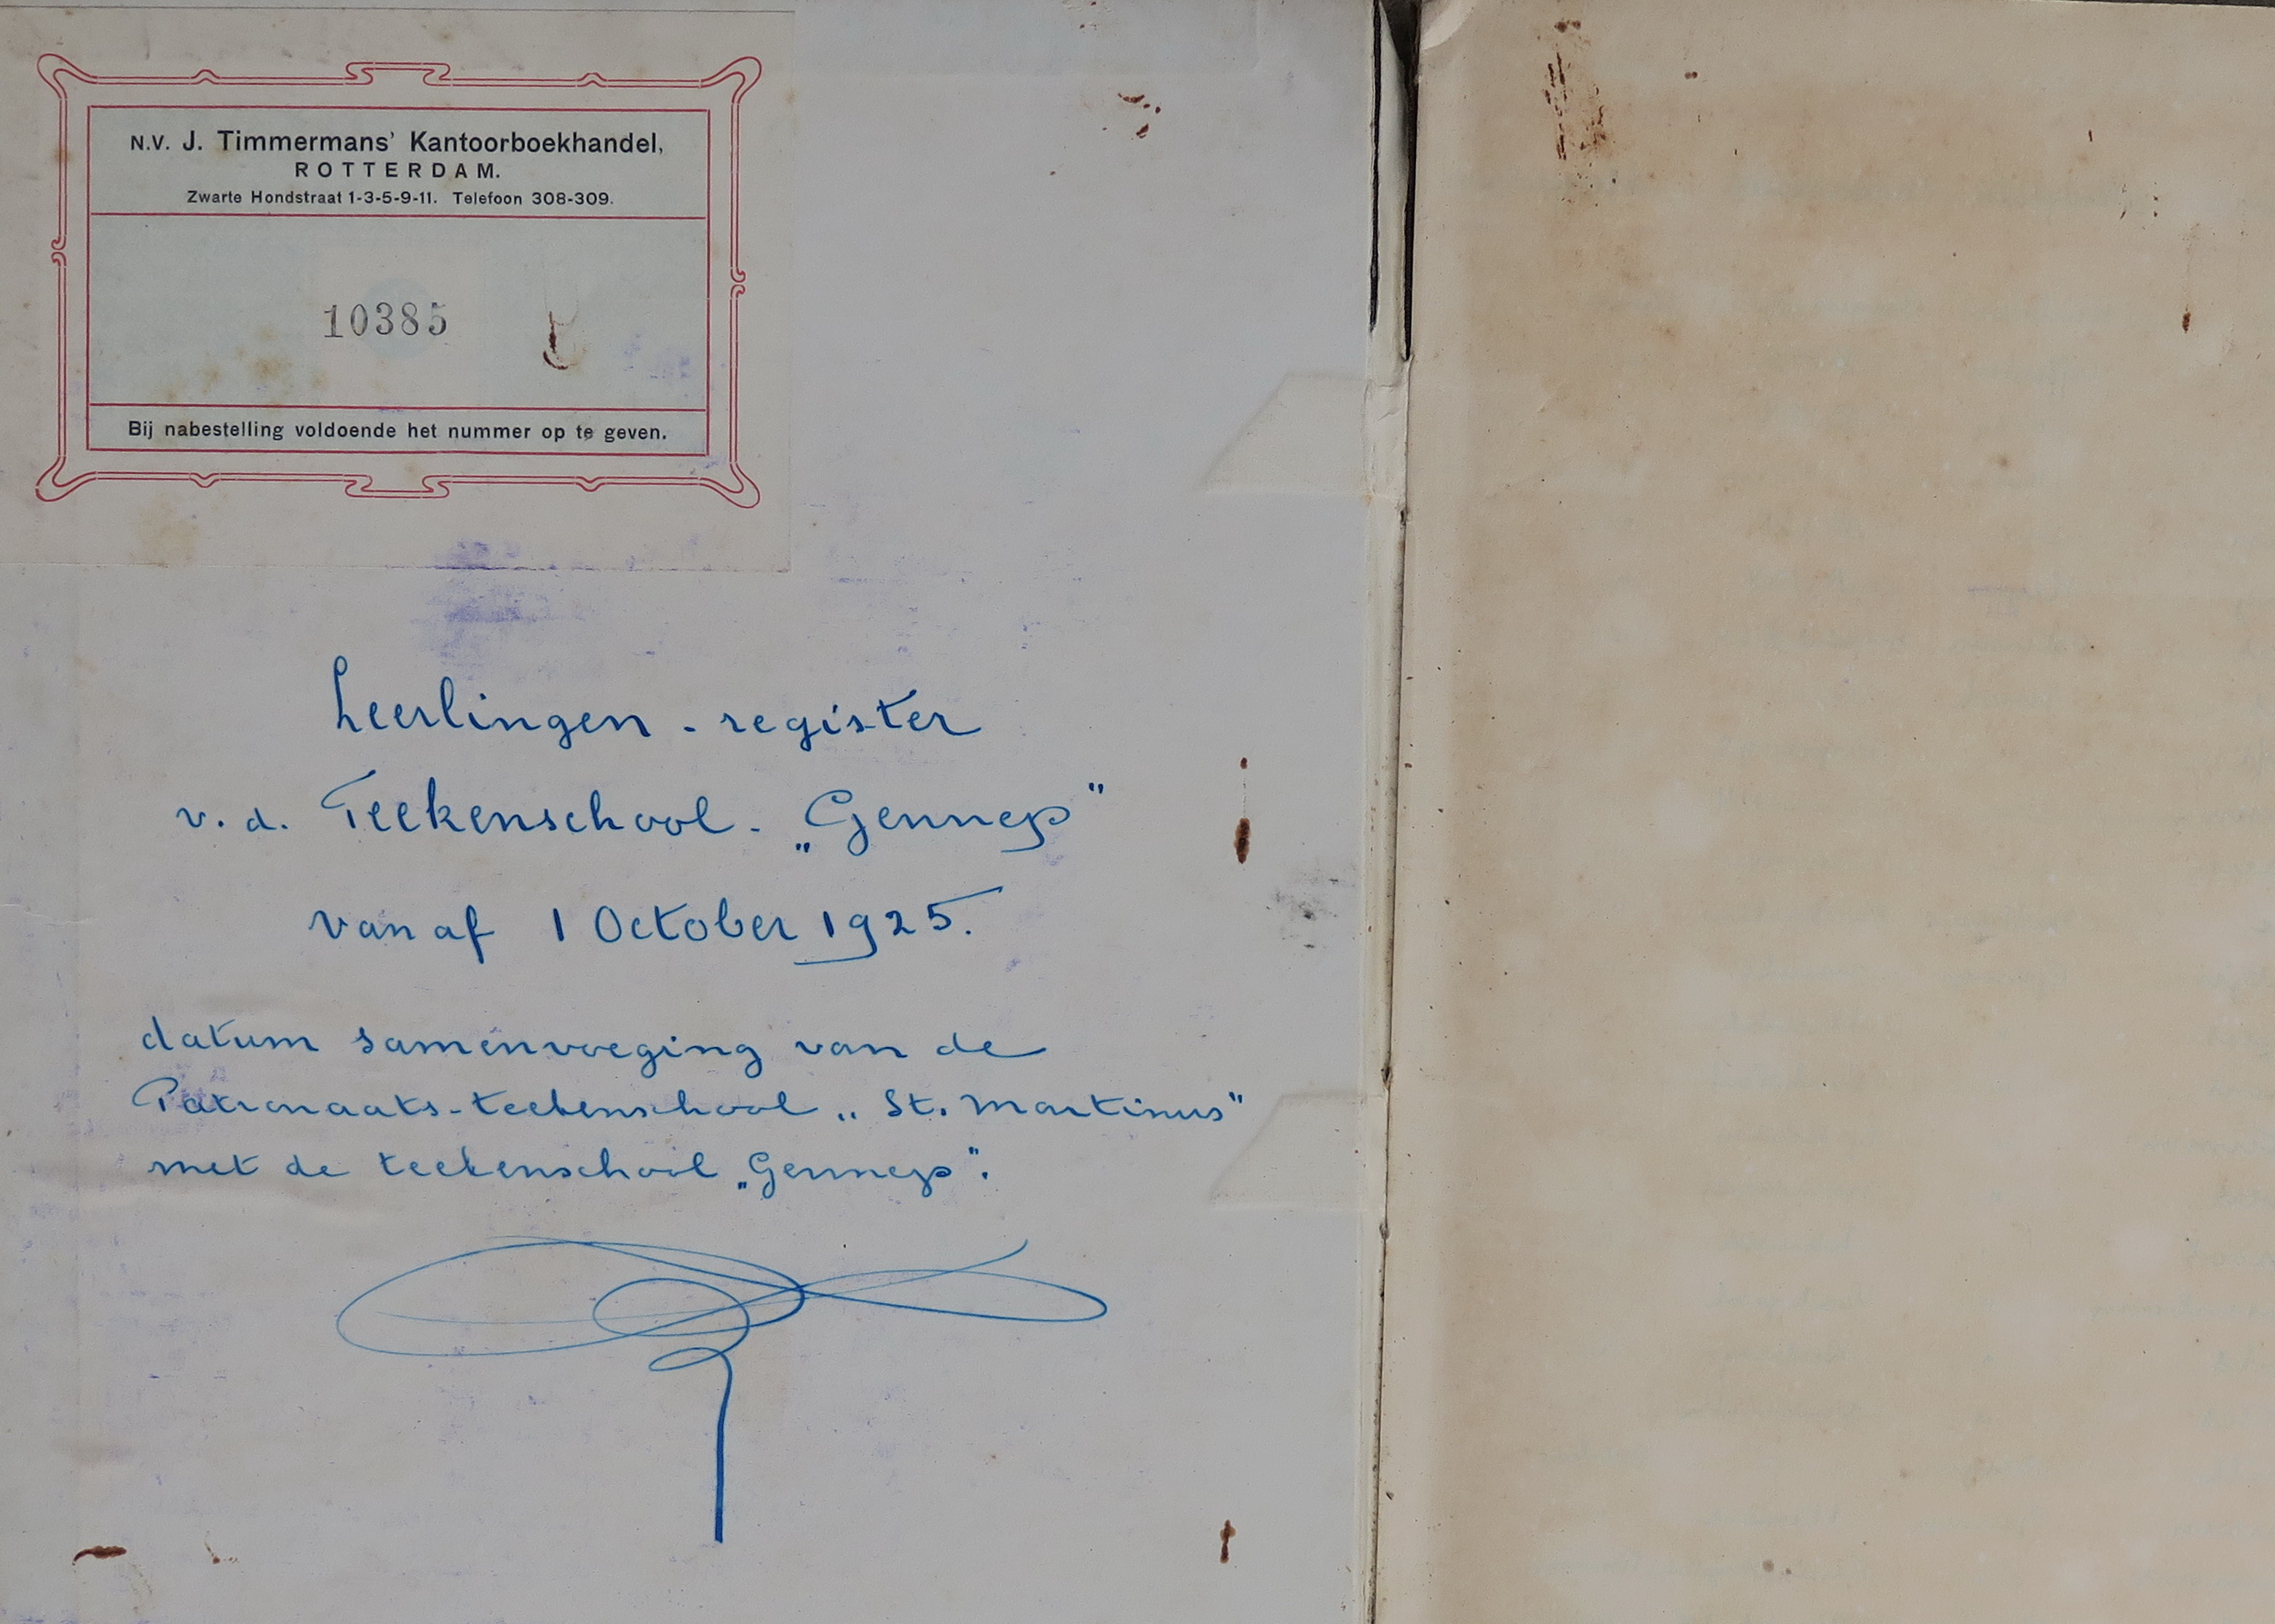 N.V. J. Timmermans' Kantoorboekhandel,
ROTTERDAM.
Zwarte Hondstraat 1-3-5-9-11. Telefoon 308-309.
10385
Bij nabestelling voldoende het nummer op te geven.
Leerlingen - register
v. d. Teekenschool - „Gennep"
vanaf 1 October 1925.
datum samenvoeging van de
Patronaats-teekenschool „St. Martinus"
met de teekenschool „Gennep".